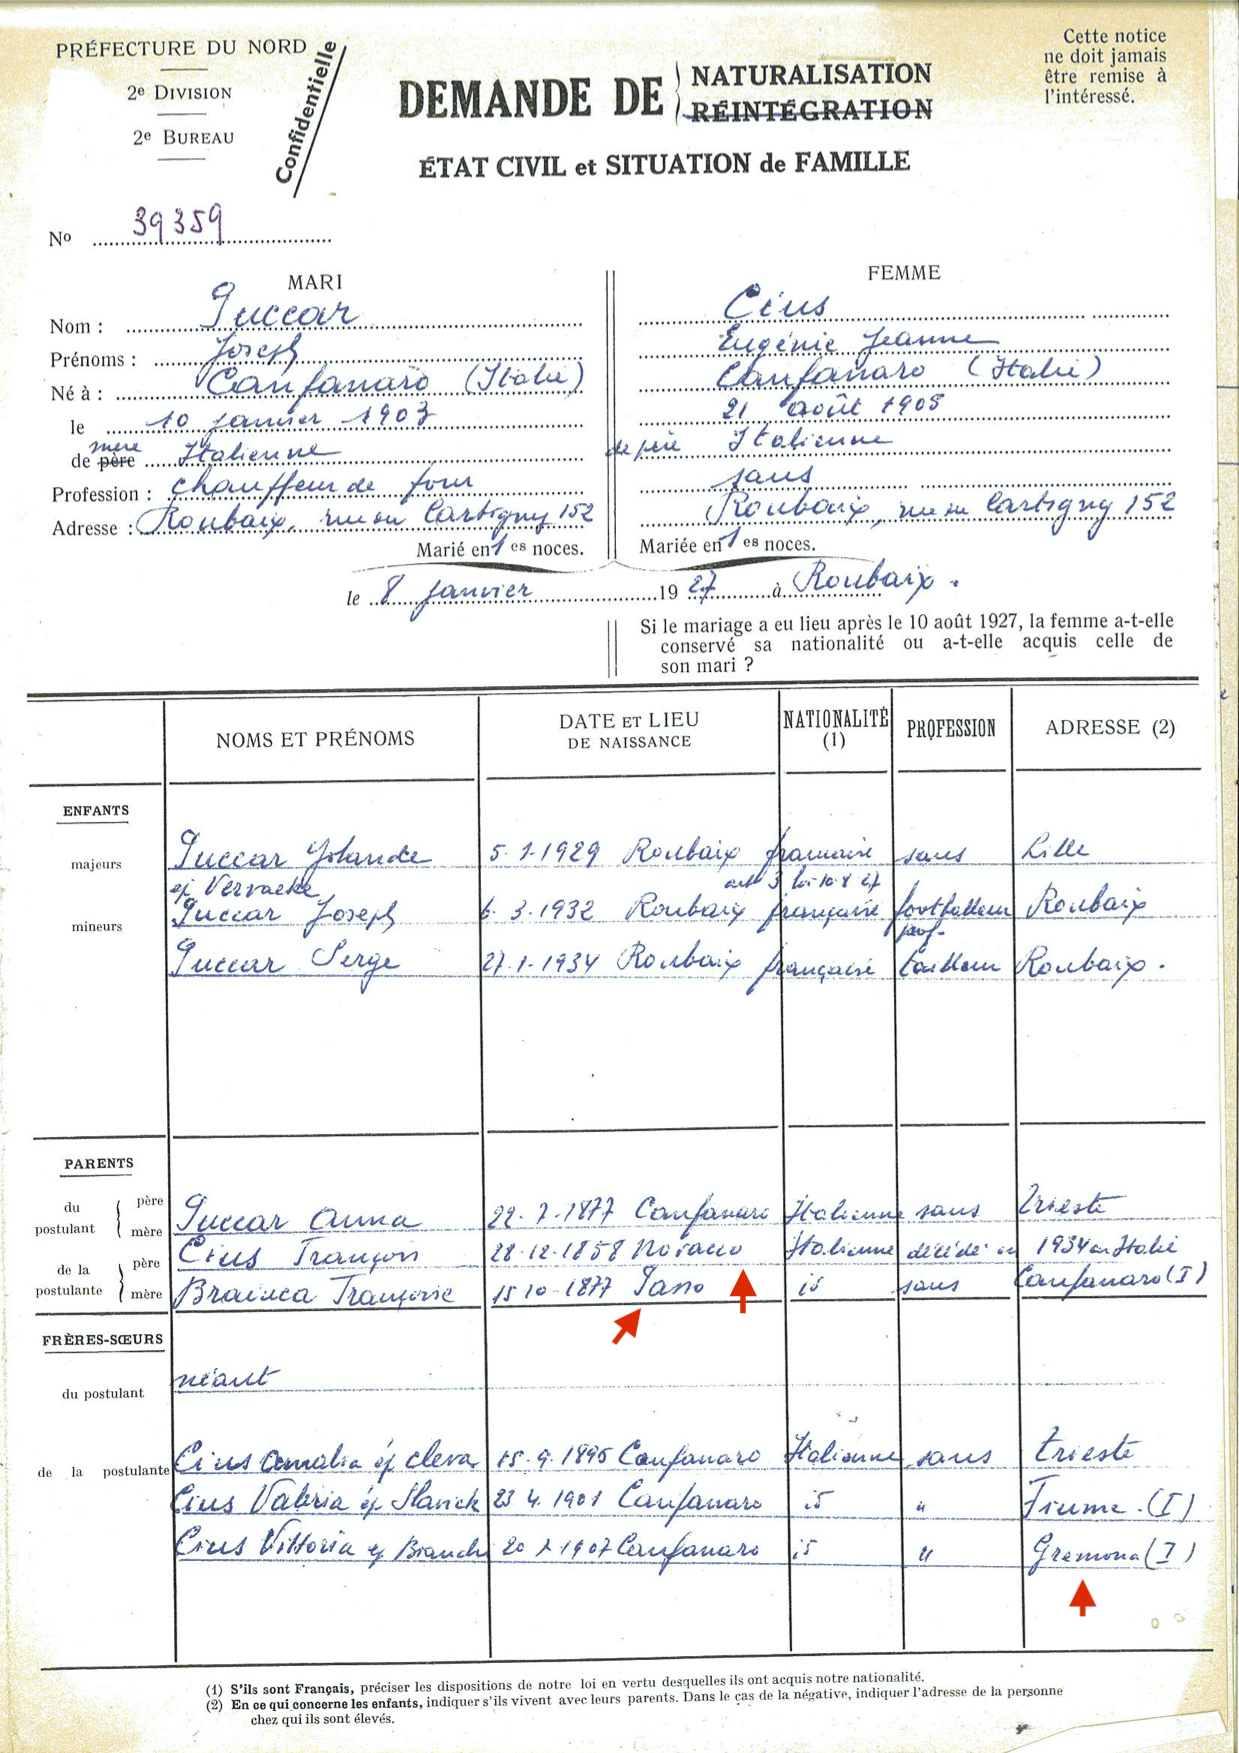 PRÉFECTURE DU NORD
2e DIVISION
2e BUREAU
Confidentielle
DEMANDE DE NATURALISATION
RÉINTÉGRATION
ÉTAT CIVIL et SITUATION de FAMILLE
Cette notice
ne doit jamais
être remise à
l'intéressé.
No 39359
MARI
Nom : Puccar
Prénoms : Joseph
Né à : Canfanaro (Italie)
le 10 janvier 1903
de père mère Italienne
Profession : chauffeur de four
Adresse : Roubaix, rue Cartigny 152
Marié en 1 es noces.
FEMME
Cius
Eugénie Jeanne
Canfanaro (Italie)
21 août 1908
de père Italienne
sans
Roubaix, rue Cartigny 152
Mariée en 1 es noces.
le 8 janvier 1927 à Roubaix.
Si le mariage a eu lieu après le 10 août 1927, la femme a-t-elle
conservé sa nationalité ou a-t-elle acquis celle de
son mari ?
NOMS ET PRÉNOMS DATE ET LIEU DE NAISSANCE NATIONALITÉ (1) PROFESSION ADRESSE (2)
ENFANTS
majeurs Puccar Yolande 5.1.1929 Roubaix française sans Lille
ép Vervaeke art 3 loi 10.8 27
mineurs Puccar Joseph 6.3.1932 Roubaix française footballeur prof. Roubaix
Puccar Serge 27.1.1934 Roubaix française tailleur Roubaix.
PARENTS
du postulant père
mère Puccar Anna 22.7.1877 Canfanaro Italienne sans Trieste
de la postulante père Cius François 28.12.1858 Novacco Italienne décédé en 1934 en Italie
mère Brainca Françoise 15 10-1877 id sans Canfanaro (I)
FRÈRES-SŒURS
du postulant néant
de la postulante Cius Amalia ép cleva 15.9.1895 Canfanaro Italienne sans Trieste
Cius Valeria ép Slavick 23 4.1901 Canfanaro id " Fiume. (I)
Cius Vittoria ép Bianchi 20 1907 Canfanaro id " Gremona (I)
(1) S'ils sont Français, préciser les dispositions de notre loi en vertu desquelles ils ont acquis notre nationalité.
(2) En ce qui concerne les enfants, indiquer s'ils vivent avec leurs parents. Dans le cas de la négative, indiquer l'adresse de la personne
chez qui ils sont élevés.